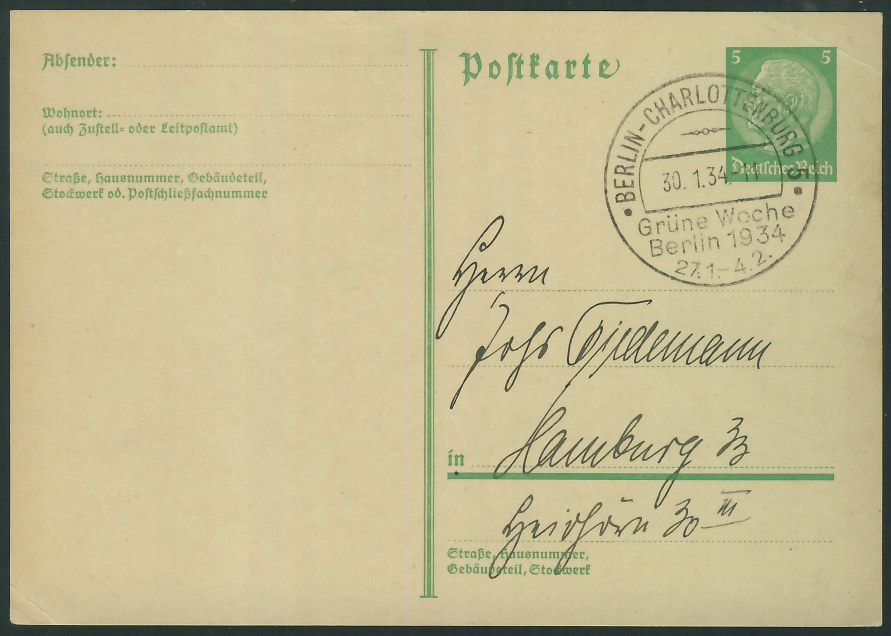 Absender:
Wohnort:
(auch Zustell- oder Leitpostamt)
Straße, Hausnummer, Gebäudeteil,
Stockwerk od. Postschließfachnummer
Postkarte
5 5
Deutsches Reich
BERLIN-CHARLOTTENBURG 5
30.1.34.-11
Grüne Woche
Berlin 1934
27.1.-4.2.
Herrn
Johs Tiedemann
in Hamburg 33
Heidhörn 30 III
Straße, Hausnummer,
Gebäudeteil, Stockwerk